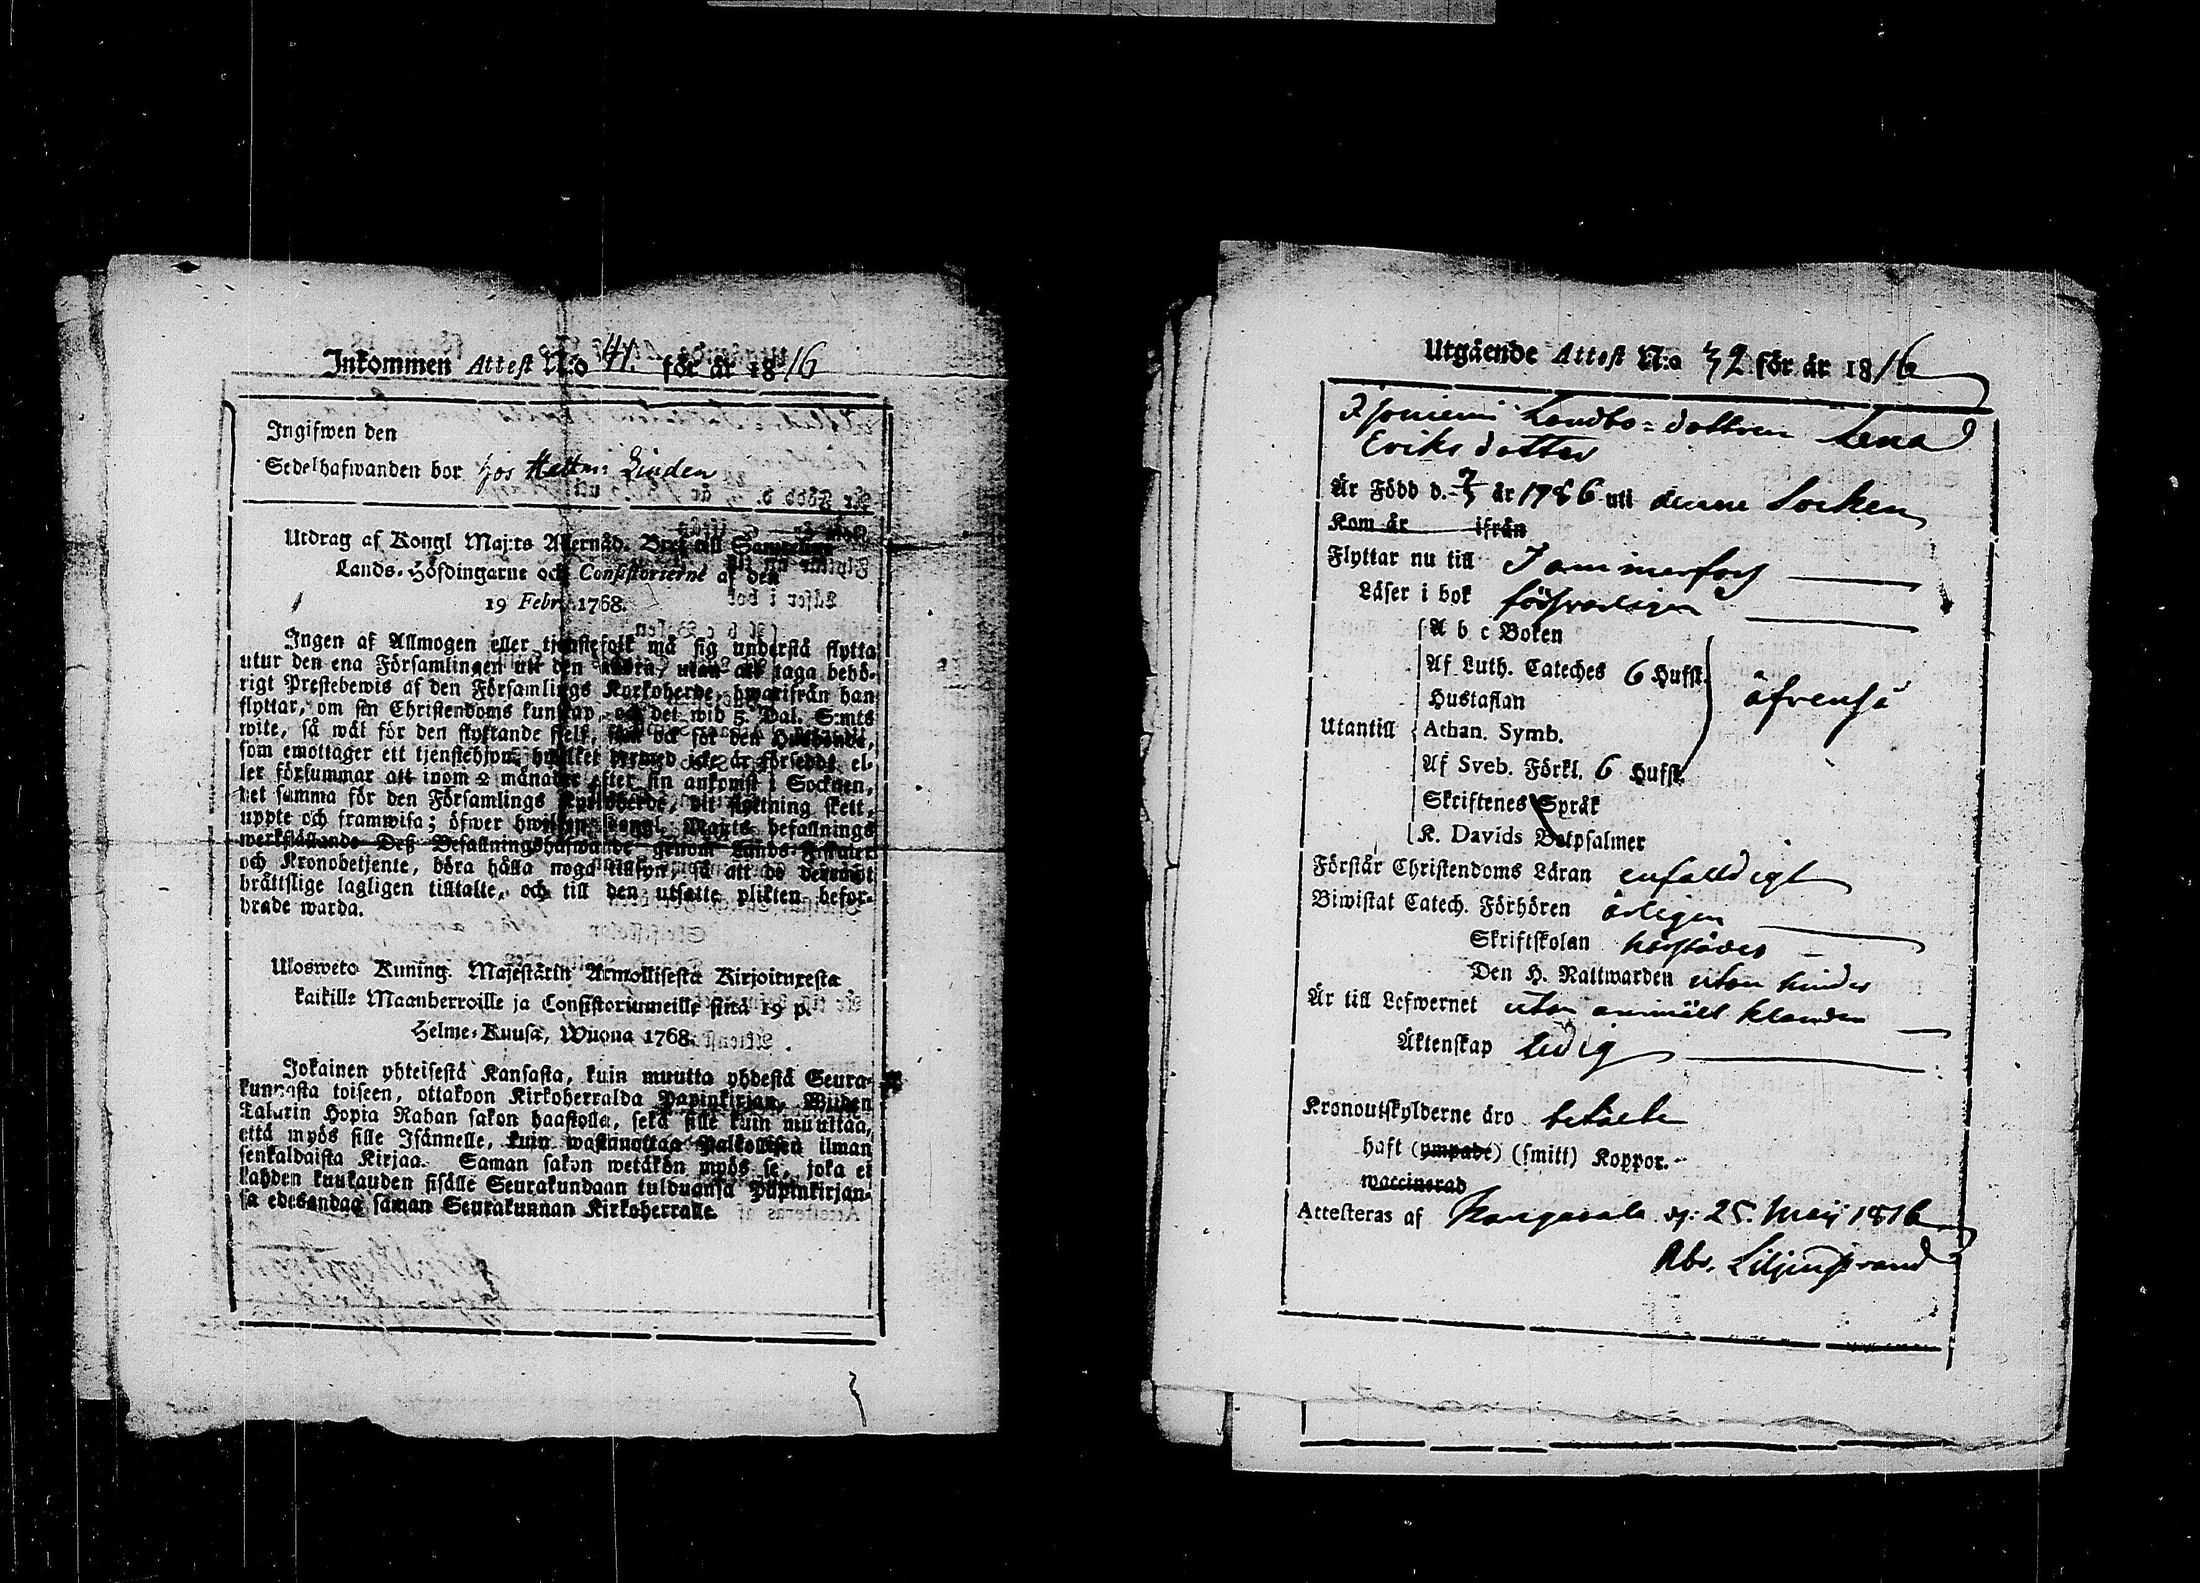 Inkommen Attest N:o 41. för år 1816
Ingifwen den
Sedelhafwanden bor hos Hattm: Linden
Utdrag af Kongl Maj:ts Allernåd. Bref till Samtelige
Lands-Höfdingarne och Consistorierne af den
19 Febr. 1768.
Ingen af Allmogen eller tjenstefolk må sig understå flytta
utur den ena Församlingen uti den andra, utan att taga behö-
rigt Prestebewis af den Församlings Kyrkoherde, hwarifrån han
flyttar, om sin Christendoms kunskap, och det wid 5. Dal. S:mts
wite, så wäl för den flyttande sjelf, som ock för den Husbonde,
som emottager ett tjenstehjon, hwilket dermed icke är försedt, el-
ler försummar att inom 2 månader efter sin ankomst i Socknen,
det samma för den Församlings Kyrkoherde, dit flyttning skett,
uppte och framwisa; öfwer hwilken Kongl. Maj:ts befallnings
werkställande Deß Befallningshafwande genom Lands-Fiskaler
och Kronobetjente, böra hålla noga tillsyn, så att de
brättslige lagligen tilltalte, och till den utsatte plikten befor-
drade warda.
Ulosweto Kuning. Majestätin Armollisesta Kirjoituxesta
kaikille Maanherroille ja Consistoriumeille siitä 19 p.
Helme-Kuusa, Wuona 1768.
Jokainen yhteisestä Kansasta, kuin muutta yhdestä Seura-
kunnasta toiseen, ottakoon Kirkoherralda Papinkirjan, Wiiden
Talarin Hopia Rahan sakon haastolla, sekä sille kuin muuttaa,
että myös sille Isännelle, kuin wastanottaa Palkollisen ilman
senkaldaista Kirjaa. Saman sakon wetäkön myös se, joka ei
kahden kuukauden sisälle Seurakundaan tulduansa Papinkirjan-
sa edesandaa saman Seurakunnan Kirkoherralle.
Utgående Attest N:o 32 för år 1816
Isoniemi Landbo=dottren Lena
Eriksdotter
Är Född d. år 1786 uti denne Socken
Kom år ifrån
Flyttar nu till Tammerfors
Läser i bok försvarligen
A b c Boken
Af Luth. Cateches 6 Hufst.
Hustaflan
äfvenså
Utantill Athan. Symb.
Af Sveb. Förkl. 6 Hufst.
Skriftenes Språk
K. Davids Botpsalmer
Förstår Christendoms Läran enfaldigt
Biwistat Catech. Förhören årligen
Skriftskolan härstädes
Den H. Nattwarden utan hinder
Är till Lefwernet utan anmält klander
Äktenskap ledig
Kronoutskylderne äro betalte
haft (ympade) (smitt) Koppor.
waccinerad
Attesteras af Kangasala d: 25. Maij 1816
Abr. Liljenstrand